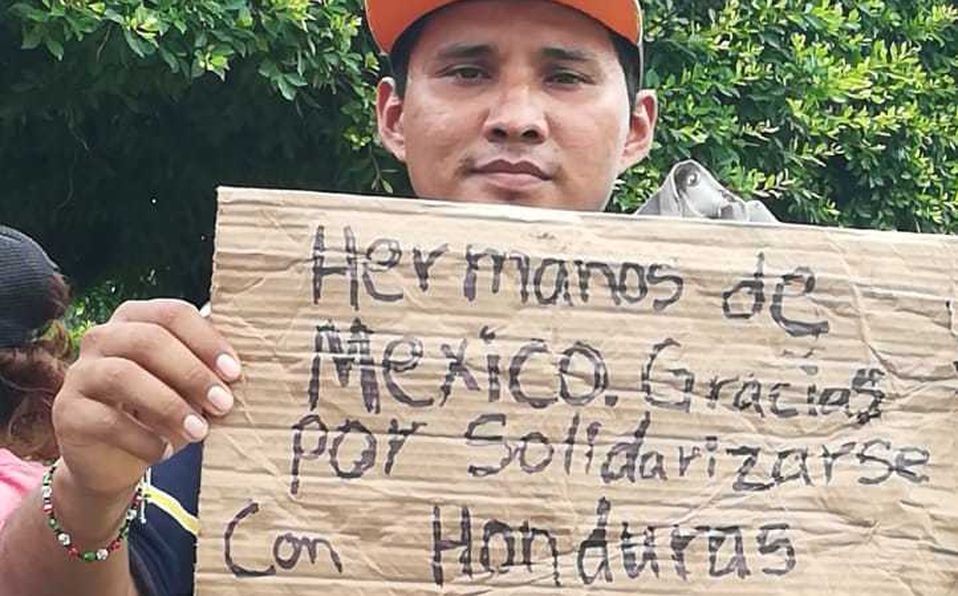 Hermanos de
Mexico. Gracias
por Solidarizarse
Con Honduras